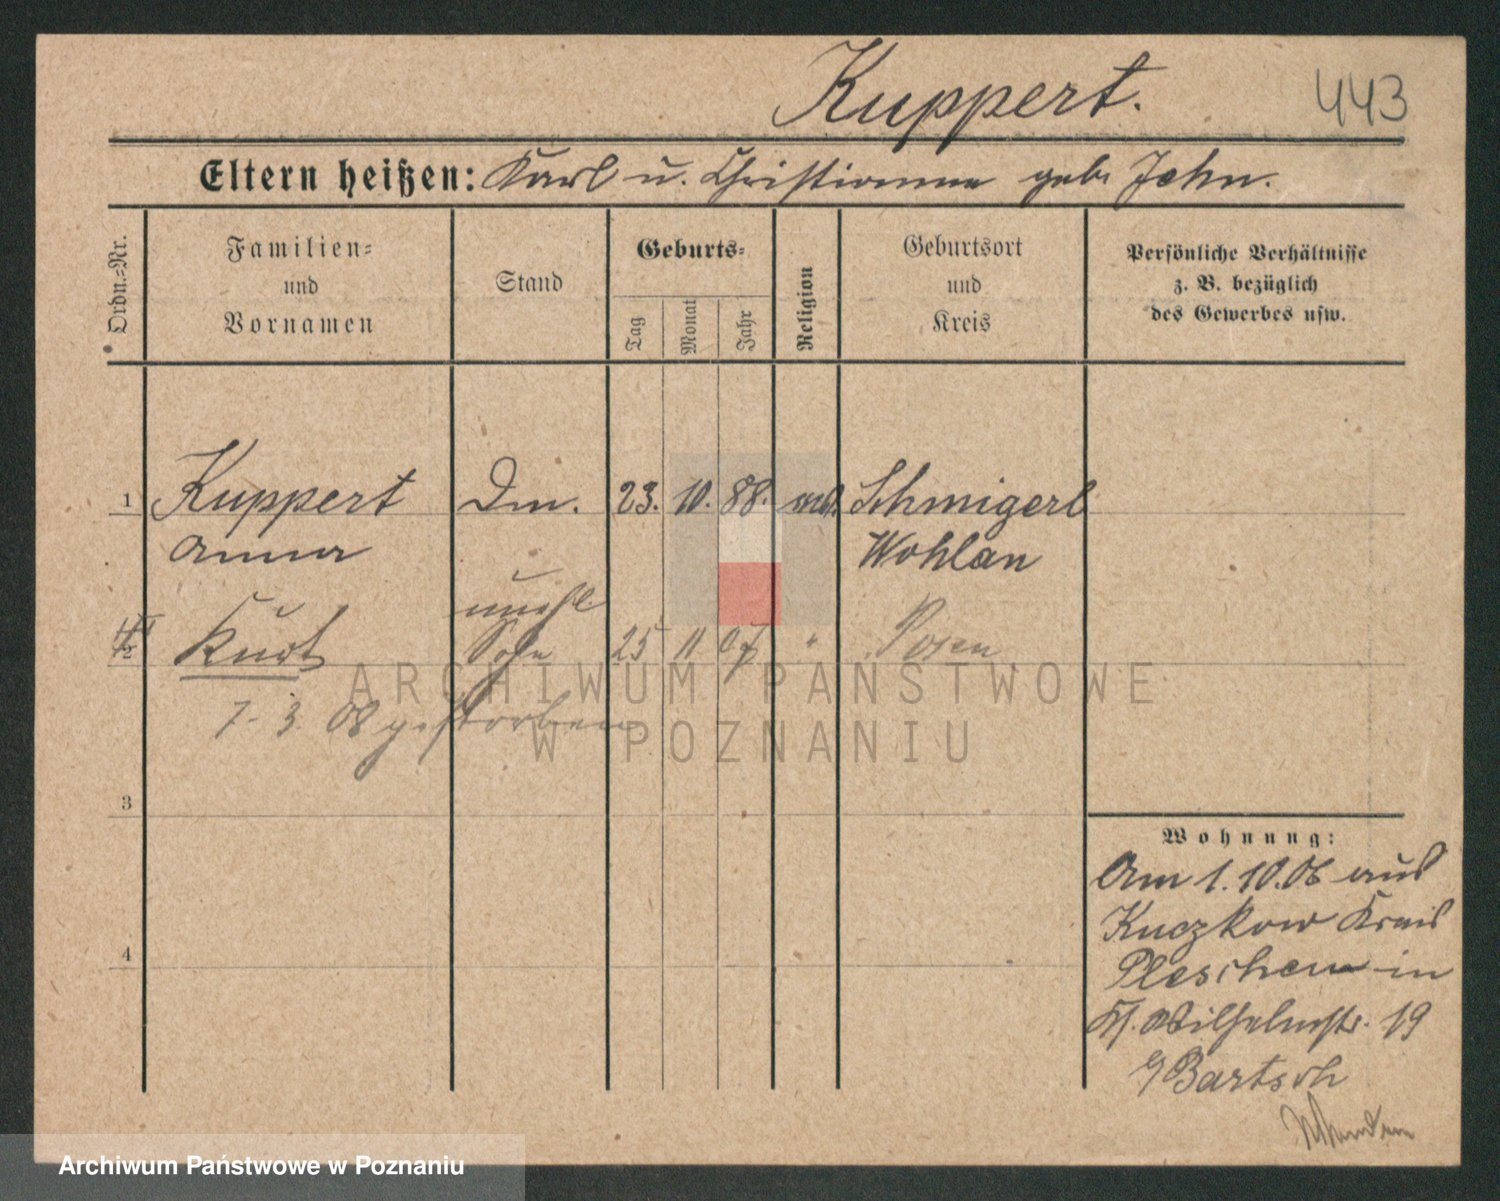 Kuppert.
443
Eltern heißen: Karl u. Christianne geb. John.
Ordn.=Nr.
Familien=
und
Vornamen
Stand
Geburts=
Tag
Monat
Jahr
Religion
Geburtsort
und
Kreis
Persönliche Verhältnisse
z. B. bezüglich
des Gewerbes usw.
1 Kuppert Dm. 23. 10. 88. Schmigerl
Anna Wohlau
unehl.
2 Kurt Sohn 25 11 07 " Posen
7. 3. 08 gestorben
3
4
Wohnung:
Am 1.10.06 aus
Kuczkow Kreis
Pleschen in
Kl. Wilhelmstr. 19
b/ Bartsch
ARCHIWUM PAŃSTWOWE
W POZNANIU
Archiwum Państwowe w Poznaniu